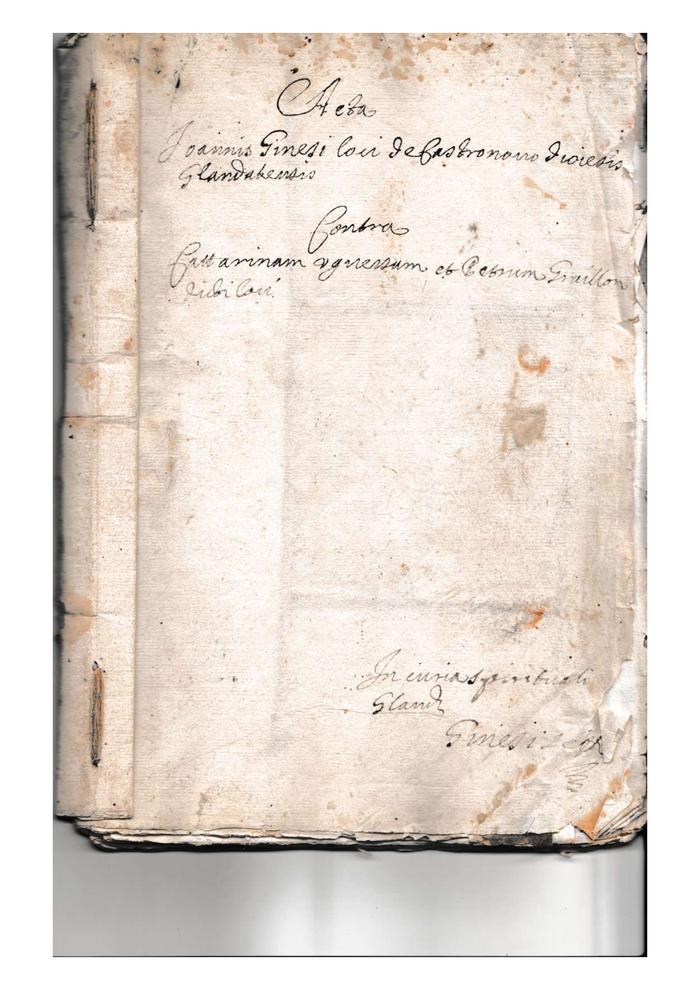 Acta
Joannis Ginesi loci de Castronovo diocesis
Glandatensis
Contra
Cattarinam vguessam et Petrum Graillon
dicti loci
In curia spirituali
Gland
Ginesi